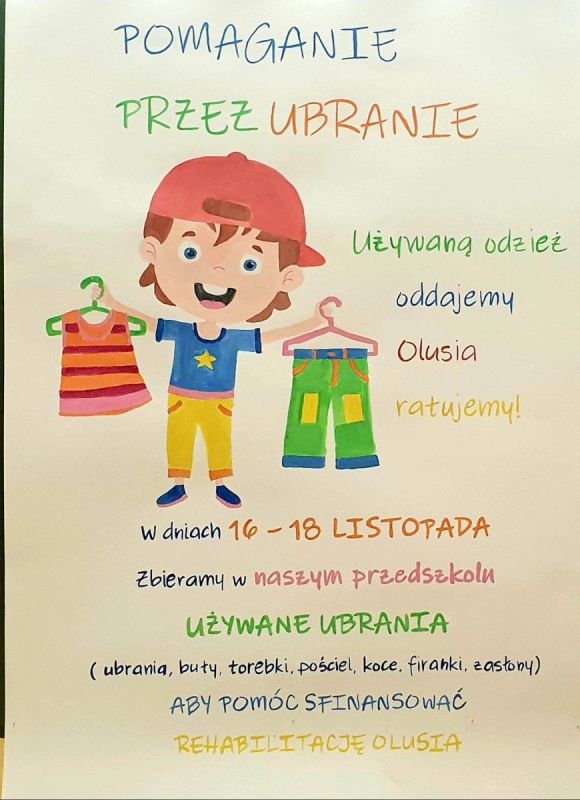 POMAGANIE
PRZEZ UBRANIE
Używaną odzież
oddajemy
Olusia
ratujemy!
W dniach 16 - 18 LISTOPADA
Zbieramy w naszym przedszkolu
UŻYWANE UBRANIA
( ubrania, buty, torebki, pościel, koce, firanki, zasłony)
ABY POMÓC SFINANSOWAĆ
REHABILITACJĘ OLUSIA